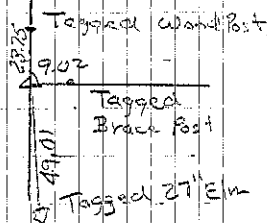 Tagged Wood Post
23.75
9.02
Tagged
Brace Post
49.01
Tagged 27" Elm